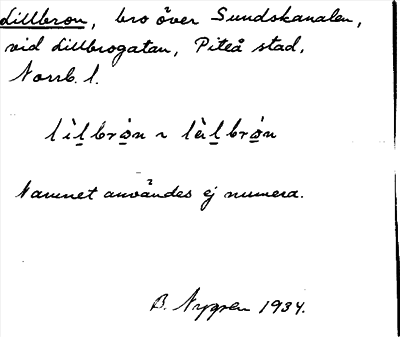 Lillbron, bro över Sundskanalen,
vid Lillbrogatan, Piteå stad,
Norrb. l.
lìl̲brò̲n ~ lèl̲brò̲n
Namnet användes ej numera.
B. Nygren 1934.